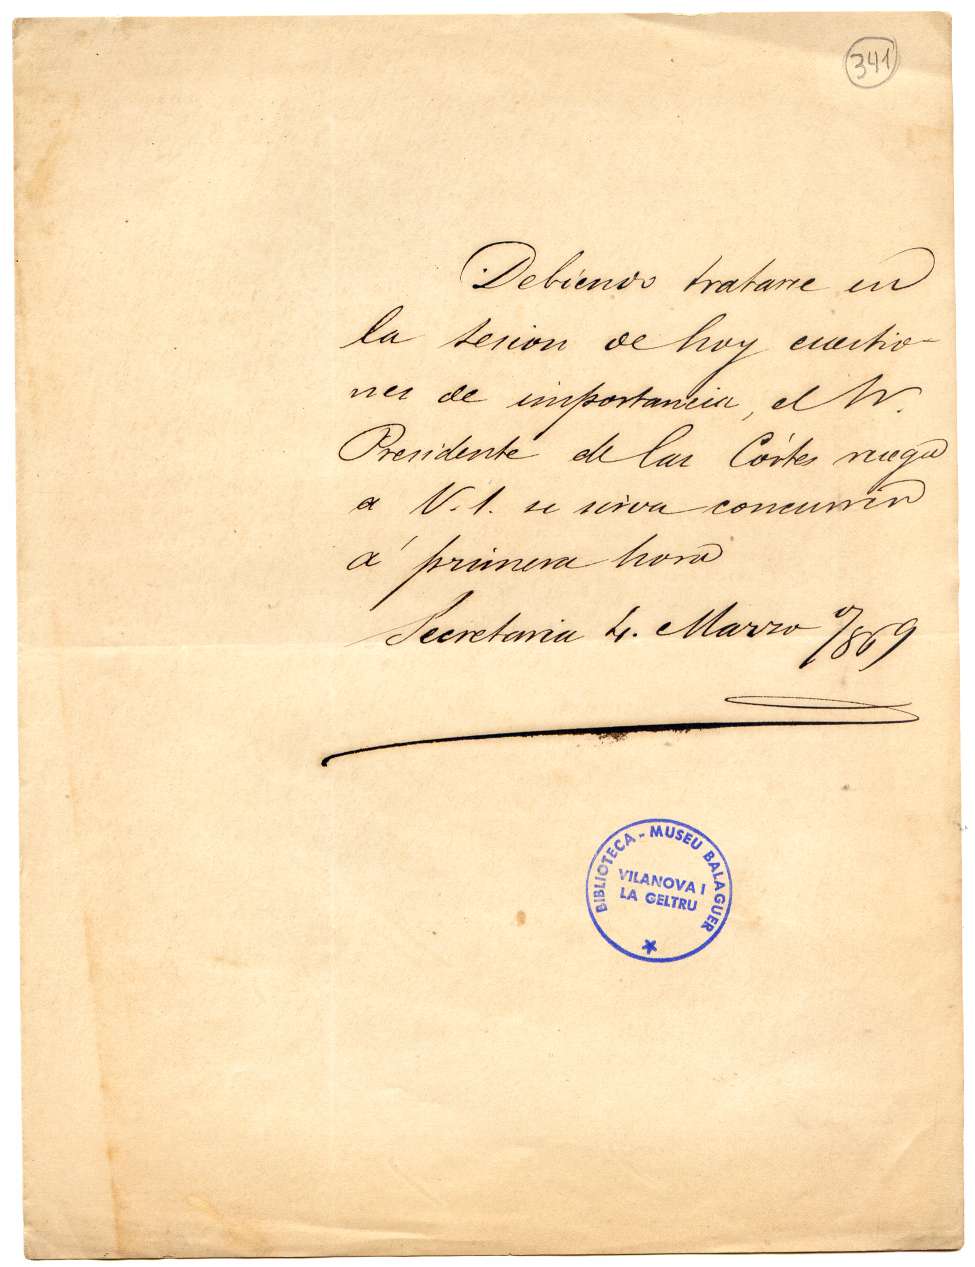 341
Debiendo tratarse en
la sesion de hoy cuestio-
nes de importancia, el Sr.
Presidente de las Córtes ruega
a V. I. se sirva concurrir
á primera hora
Secretaria 4. Marzo 1869
BIBLIOTECA - MUSEU BALAGUER
VILANOVA I
LA GELTRU